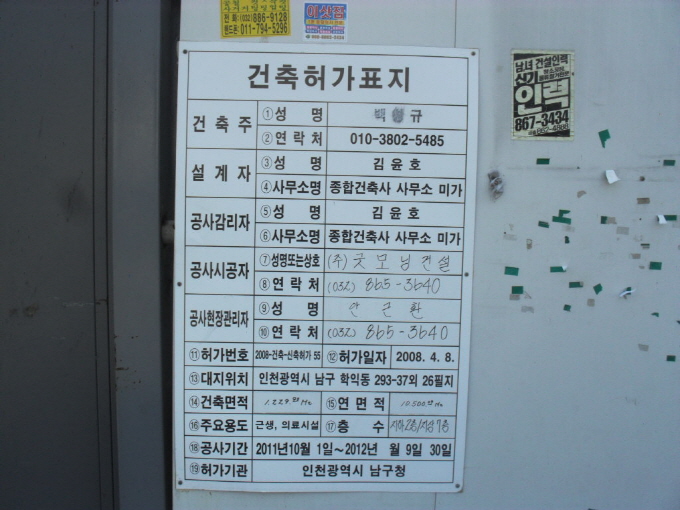 전화(032)886-9128
핸드폰)011-794-5296
건축허가표지
건축주 ①성 명 백 규
②연락처 010-3802-5485
설계자 ③성 명 김윤호
④사무소명 종합건축사 사무소 미가
공사감리자 ⑤성 명 김윤호
⑥사무소명 종합건축사 사무소 미가
공사시공자 ⑦성명또는상호 (주)굿모닝건설
⑧연락처 (032) 865-3640
공사현장관리자 ⑨성 명 안근환
⑩연락처 (032) 865-3640
⑪허가번호 2008-건축-신축허가 55 ⑫허가일자 2008. 4. 8.
⑬대지위치 인천광역시 남구 학익동 293-37외 26필지
⑭건축면적 ⑮연면적
⑯주요용도 근생, 의료시설 ⑰층 수 지하2층/지상7층
⑱공사기간 2011년10월 1일~2012년 월 9일 30일
⑲허가기관 인천광역시 남구청
남녀 건설인력
신기
인력
867-3434